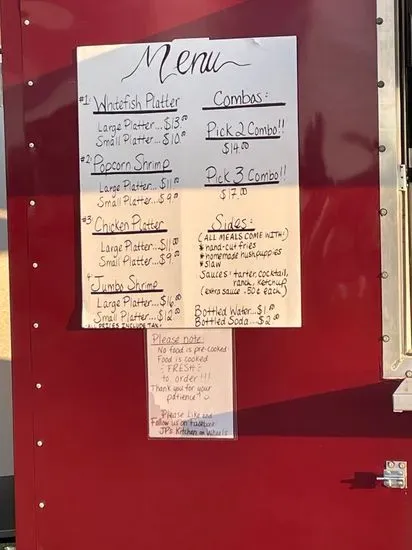 Menu
#1: Whitefish Platter
Large Platter...$13.00
Small Platter...$10.00
#2: Popcorn Shrimp
Large Platter...$11.00
Small Platter...$9.00
#3: Chicken Platter
Large Platter...$11.00
Small Platter...$9.00
4 Jumbo Shrimp
Large Platter...$16.00
Small Platter...$12.00
ALL PRICES INCLUDE TAX!
Combos:
Pick 2 Combo!!
$14.00
Pick 3 Combo!!
$17.00
Sides:
(ALL MEALS COME WITH:)
* hand-cut fries
* homemade hushpuppies
* slaw
Sauces: tarter, cocktail,
ranch, ketchup
(extra sauce -50¢ each)
Bottled Water...$1.00
Bottled Soda...$2.00
Please note:
No food is pre-cooked
Food is cooked
- FRESH -
to order!!!
Thank you for your
patience!
Please Like and
Follow us on Facebook
JP's Kitchen on Wheels